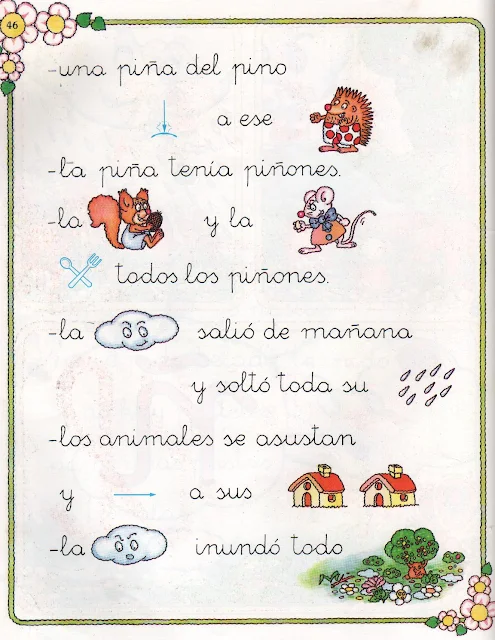 46
-una piña del pino
a ese
-la piña tenía piñones.
-la y la
todos los piñones.
-la salió de mañana
y soltó toda su
-los animales se asustan
y a sus
-la inundó todo